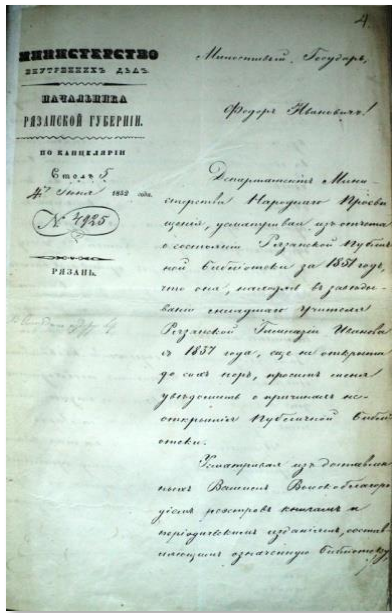 4.
МИНИСТЕРСТВО
ВНУТРЕННИХЪ ДѢЛЪ.
НАЧАЛЬНИКА
РЯЗАНСКОЙ ГУБЕРНІИ.
ПО КАНЦЕЛЯРІИ
Столъ 5
4 Іюня 1852 года.
№ 4925
РЯЗАНЬ.
Милостивый Государь,
Федоръ Ивановичъ!
Департаментъ Мини-
стерства Народнаго Просвѣ-
щенія, усматривая изъ отчета
о состояніи Рязанской Публич-
ной библіотеки за 1851 годъ,
что она, находясь въ завѣды-
ваніи младшаго учителя
Рязанской Гимназіи Иванова
съ 1837 года, еще не открыта
до сихъ поръ, проситъ меня
увѣдомить о причинахъ не-
открытія публичной библі-
отеки.
Усматривая изъ доставлен-
ныхъ Вашимъ Высокоблагоро-
діемъ реэстровъ книгамъ и
періодическимъ изданіямъ, состав-
ляющимъ означенную библіотеку,